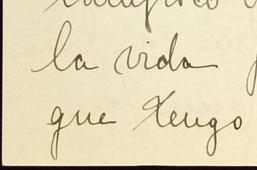 la vida
que tengo